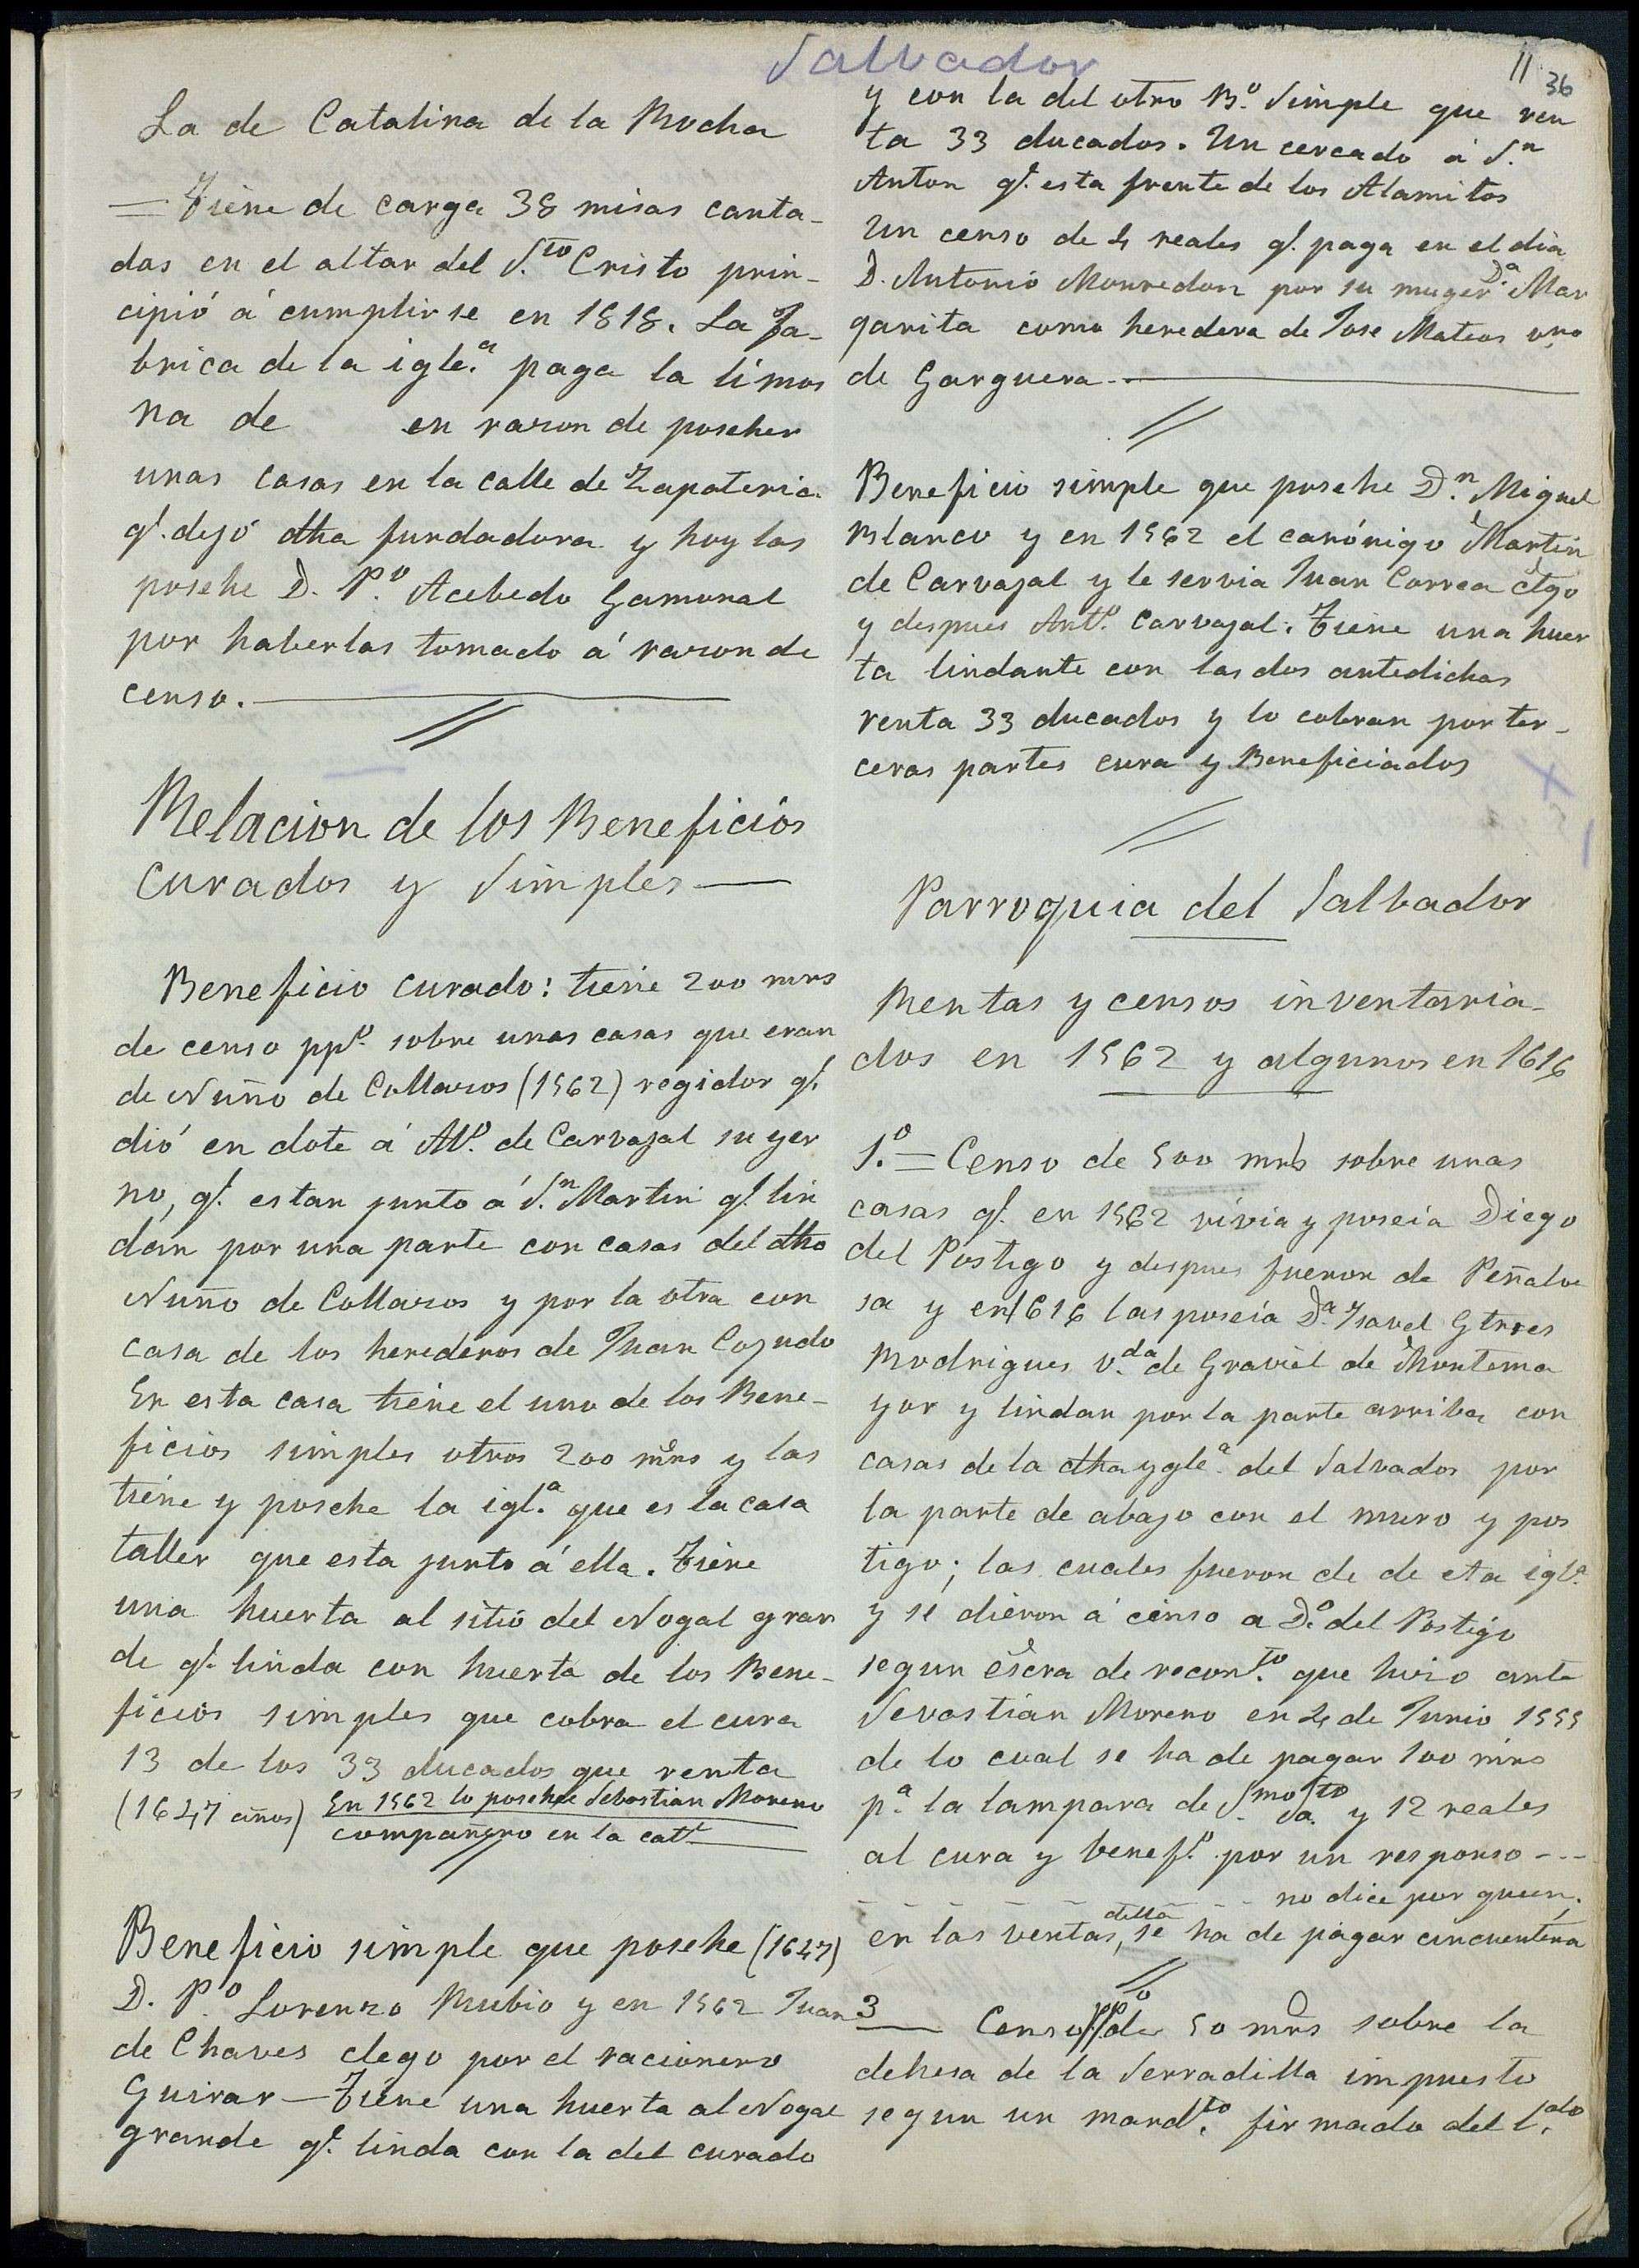 Salvador
11 36
La de Catalina de la Rocha
= Tiene de carga 38 misas canta-
das en el altar del S.to Cristo prin-
cipió á cumplirse en 1818. La Fa-
brica de la igle.a paga la limos
na de en razon de poseher
unas casas en la calle de Zapateria
q.e dejó dha fundadora y hoy las
posehe D. P.o Acebedo Gamonal
por haberlas tomado á razon de
censo.
Relacion de los Beneficios
curados y Simples —
Beneficio curado: tiene 200 mrs
de censo pp.o sobre unas casas que eran
de Nuño de Collazos (1562) regidor q.e
dió en dote á Al.o de Carvajal su yer
no, q.e estan junto á S.n Martin q.e lin
dan por una parte con casas del dho
Nuño de Collazos y por la otra con
casa de los herederos de Juan Cojudo
En esta casa tiene el uno de los Bene-
ficios simples otros 200 mrs y las
tiene y posehe la igl.a que es la casa
taller que esta junto á ella. Tiene
una huerta al sitio del Nogal gran
de q.e linda con huerta de los Bene-
ficios simples que cobra el cura
13 de los 33 ducados que renta
(1647 años) En 1562 lo posehe Sebastian Moreno
compañero en la cat.l
Beneficio simple que posehe (1647)
D. P.o Lorenzo Rubio y en 1562 Juan
de Chaves clego por el racionero
Guirar — Tiene una huerta al Nogal
grande q.e linda con la del curado
y con la del otro B.o Simple que ren
ta 33 ducados. Un cercado á S.n
Anton q.e esta frente de los Alamitos
Un censo de 4 reales q.e paga en el dia
D. Antonio Monredon por su muger D.a Mar
garita como heredera de Jose Mateos vno
de Garguera.
Beneficio simple que posehe D.n Miguel
Blanco y en 1562 el canónigo Martin
de Carvajal y le servia Juan Correa clgo
y despues Ant.o Carvajal. Tiene una huer
ta lindante con las dos antedichas
renta 33 ducados y lo cobran por ter-
ceras partes cura y Beneficiados
Parroquia del Salbador
Rentas y censos inventaria-
dos en 1562 y algunos en 1616
1.o = Censo de 500 mrs sobre unas
casas q.e en 1562 vivia y poseia Diego
del Postigo y despues fueron de Peñalo
sa y en 1616 las poseia D.a Ysavel Gtrres
Rodrigues v.da de Graviel de Montema
yor y lindan por la parte arriba con
casas de la dha ygle.a del Salvados por
la parte de abajo con el muro y pos
tigo; las cuales fueron de de eta igl.a
y se dieron á censo a D.o del Postigo
segun escra de recon.to que hizo ante
Sevastian Moreno en 4 de Junio 1555
de lo cual se ha de pagar 100 mrs
p.a la lampara de S.mo Sa.to y 12 reales
al cura y benef.o por un responso ---
- - - - - - no dice por quien,
en las ventas della, se ha de pagar cincuentena
3 — Censo pp.o de 50 mrs sobre la
dehesa de la Serradilla impuesto
segun un mand.to firmado del l.do